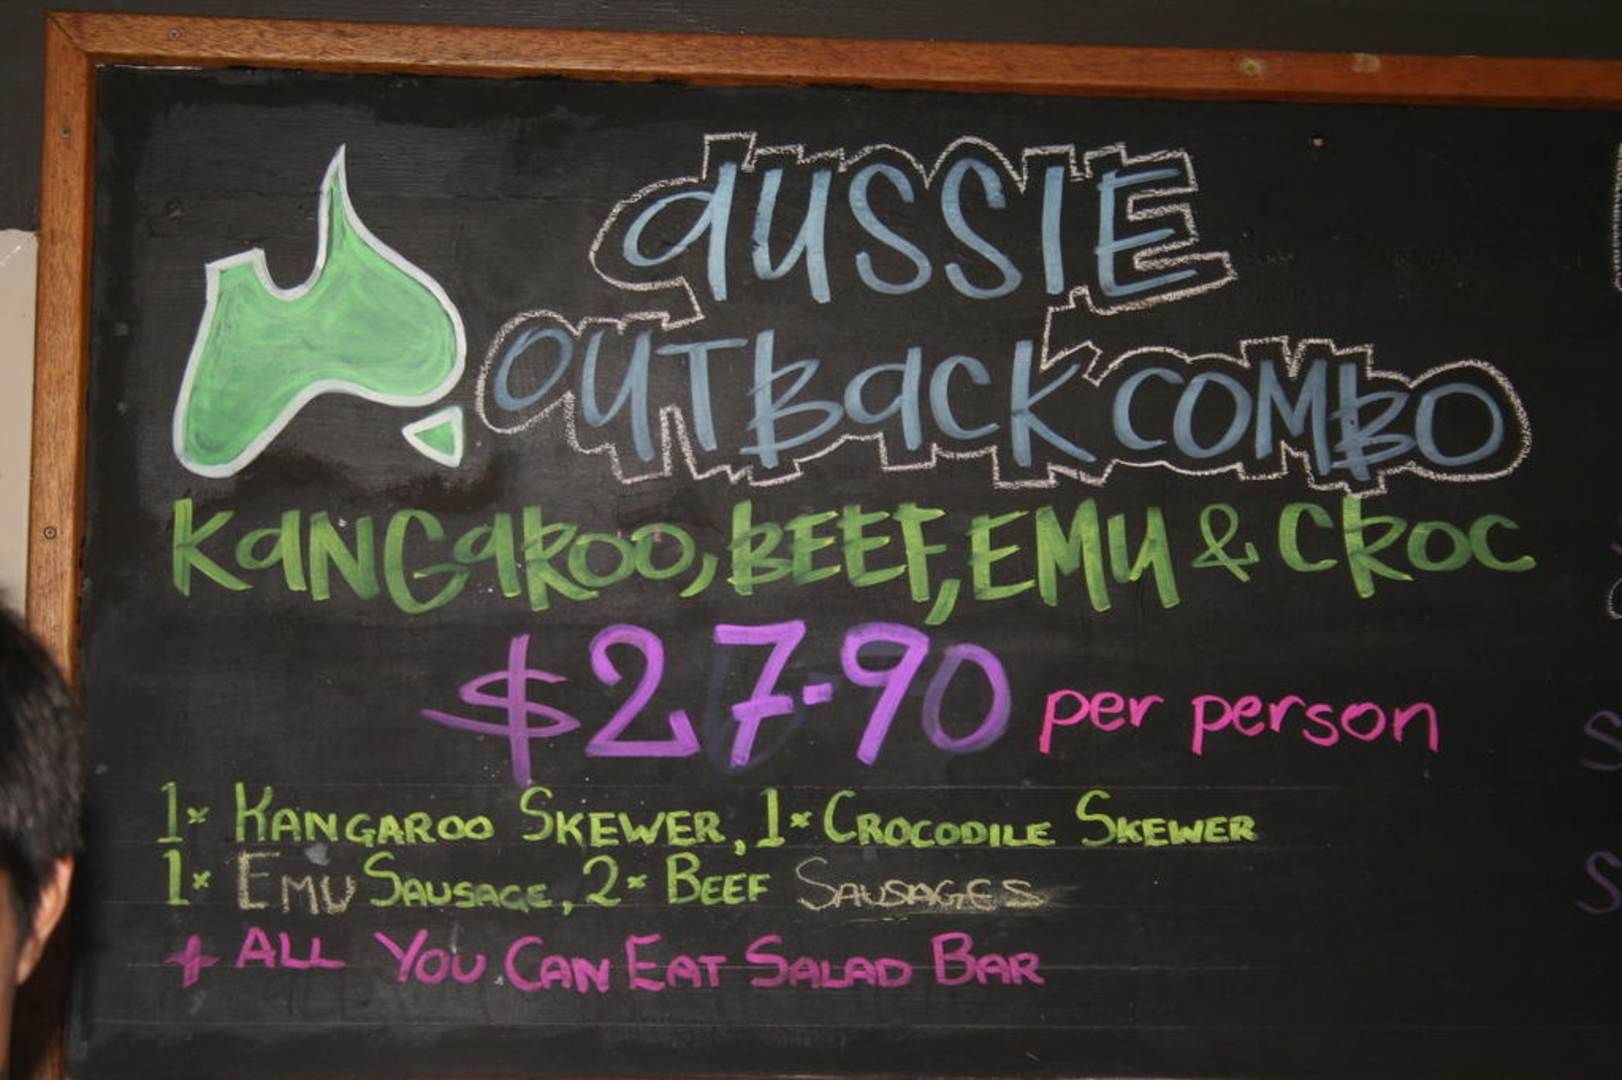 aUSSIE
OUTBaCK COMBO
KaNGaROO, BEEF, EMU & CROC
$27.90 per person
1x KANGAROO SKEWER, 1x CROCODILE SKEWER
1x EMU SAUSAGE, 2x BEEF SAUSAGES
+ ALL YOU CAN EAT SALAD BAR